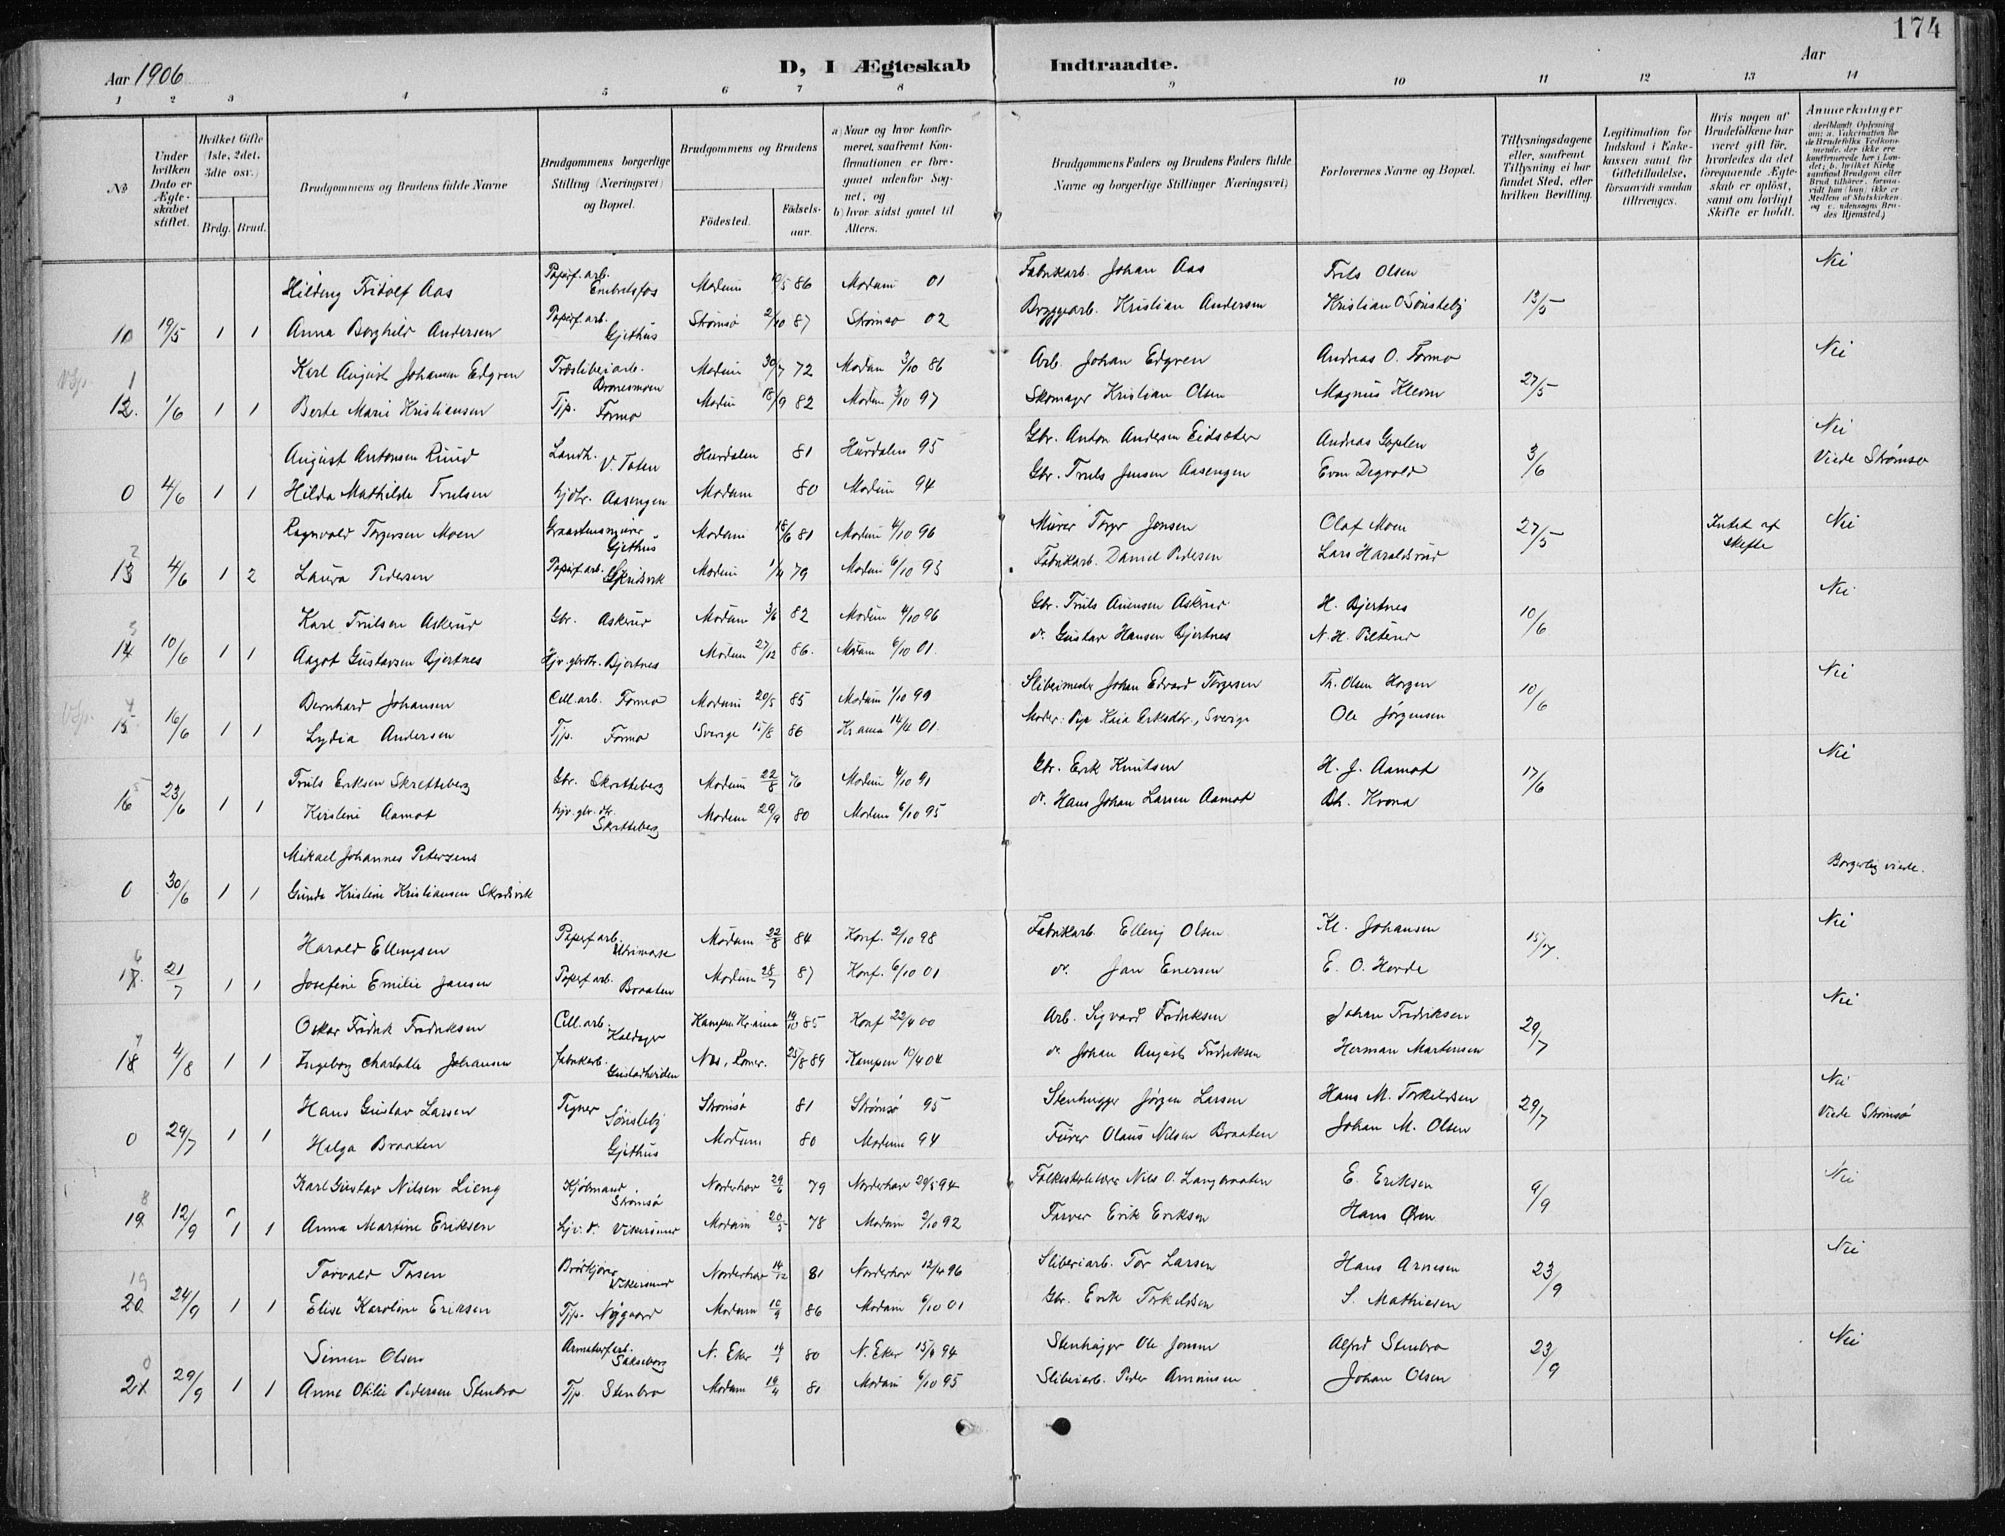 174
Aar 1906
D, I Ægteskab Indtraadte.
Aar
1 2 3 4 5 6 7 8 9 10 11 12 13 14
No
Under hvilken Dato er Ægteskabet stiftet.
Hvilket Gifte (1ste, 2det, 3die osv.)
Brdg. Brud.
Brudgommens og Brudens fulde Navne
Brudgommens borgerlige Stilling (Næringsvei) og Bopæl.
Brudgommens og Brudens
Fødested.
Fødselsaar.
a) Naar og hvor konfirmeret, saafremt Konfirmationen er foregaaet udenfor Sognet, og
b) hvor sidst gaaet til Alters.
Brudgommens Faders og Brudens Faders fulde Navne og borgerlige Stillinger (Næringsvei)
Forlovernes Navne og Bopæl.
Tillysningsdagene eller, saafremt Tillysning ei har fundet Sted, efter hvilken Bevilling.
Legitimation for Indskud i Enkekassen samt for Giftetilladelse, forsaavidt saadan tiltrænges.
Hvis nogen af Brudefolkene har været gift før, hvorledes da det foregaaende Ægteskab er opløst, samt om lovligt Skifte er holdt.
Anmerkninger
(deriblandt Oplysning om: a. Vakcination for de Brudefolks Vedkommende, der ikke ere konfirmerede her i Landet; b. hvilket Kirkesamfund Brudgom eller Brud tilhører, forsaavidt han (hun) ikke er Medlem af Statskirken, og c. udensogns Brudes Hjemsted.)
Hilding Fridolf Aas Papirf.arb. Embretsfos Modum 10/5 86 Modum 01 Fabrikarb. Johan Aas Frits Olsen Nei
11 19/5 1 1 Anna Borghild Andersen Papirf.arb. Gjethus Strømsø 2/10 87 Strømsø 02 Bryggearb. Kristian Andersen Kristian O Sønsteby 13/5
Karl August Johansen Edgren Træsliberiarb. Modum 30/7 72 Modum 3/10 86 Arb. Johan Edgren Andreas O. Formo Nei
12. 1/6 1 1 Berte Marie Kristiansen Tjp. Formo Modum 18/9 82 Modum 3/10 97 Skomager Kristian Olsen Magnus Kleven 27/5
August Antonsen Ruud Landh. V. Toten Hurdalen 81 Hurdalen 95 Gbr. Anton Andersen Eidsæter Andreas Gaplen Nei
0 4/6 1 1 Hilda Mathilde Trulsen hjdtr. Aasengen Modum 80 Modum 94 Gbr. Truls Jensen Aasengen Even Degvold 3/6 Viede Strømsø
Ragnvald Torgersen Moen Graastensmurer Gjethus Modum 18/6 81 Modum 4/10 96 Murer Torger Jonsen Olaf Moen 27/5 Intet at skifte Nei
13 4/6 1 2 Laura Pedersen Papirf.arb. Skredsvik Modum 1/11 79 Modum 6/10 93 Fabrikarb. Daniel Pedersen Lars Haraldsrud
Karl Trulsen Askerud Gbr. Askerud Modum 3/6 82 Modum 4/10 96 Gbr. Truls Auensen Askerud H. Bjertnes 10/6 Nei
14 10/6 1 1 Aagot Gustavsen Bjertnes Hjv. gbrdtr. Bjertnes Modum 27/12 86. Modum 6/10 01. do. Gustav Hansen Bjertnes N. H. Pilterud
Bernhard Johansen Cell.arb. Formo Modum 20/5 85 Modum 1/10 99 Slibemester Johan Edvard Torgersen Th. Olsen Horgen 10/6 Nei
15 16/6 1 1 Lydia Andersen Tjp. Formo Sverige 15/8 86 Kr.ania 14/4 01. Moder: Pige Kaia Eriksdtr., Sverige Ole Jørgensen
Truls Eriksen Skretteberg Gbr. Skretteberg Modum 22/8 76 Modum 4/10 91 Gbr. Erik Knutsen H. J. Aamot 17/6 Nei
16 23/6 1 1 Kirstine Aamot hjv. gbr. dtr. Skretteberg Modum 29/9 80 Modum 6/10 95 do. Hans Johan Larsen Aamot Chr. Krona
Mikael Johannes Petersens Borgerlig viede.
0 30/6 1 1 Gunda Kristine Kristiansen Skredsvik
Harald Ellingsen Papirf arb. Modum 22/8 84 Konf. 2/10 98 Fabrikarb. Elling Olsen Kl. Johansen 15/7. Nei
17. 21/7 1 1 Josefine Emilie Jansen Papirf arb. Braaten Modum 28/7 87 Konf. 6/10 01 do. Jan Enersen E. O. Hovde
Oskar Fridrik Fredriksen Cell.arb. Haldager Kampen Kr.ania 14/10 85 Konf 22/4 00 Arb. Sigvard Fredriksen Johan Fredriksen Nei
18 4/8 1 1 Ingeborg Charlotte Johansen fabrikarb. Gustadheiden Nes, Romer. 25/8 89 Kampen 10/4 04 do. Johan August Fredriksen Herman Martensen 29/7
Hans Gustav Larsen Tegner Sønsteby Strømsø 81 Strømsø 95 Stenhugger Jørgen Larsen Hans M. Torkildsen 29/7 Nei
0 29/7 1 1 Helga Braaten Gjethus Modum 80 Modum 94 Furer Olaus Nilsen Braaten Johan M. Olsen Viede Strømsø
Karl Gustav Nilsen Lieng Kjøbmand Strømsø Norderhov 29/6 79 Norderhov 29/5 94 Folkeskolelærer Nils O. Langbraaten E. Eriksen 9/9 Nei
19. 12/9 1 1 Anna Martine Eriksen hjv. dr. Vikersund Modum 20/5 78 Modum 2/10 92 Farver Erik Eriksen Hans Øren
Torvald Tosen Brødkjører Vikersund Norderhov 14/12 81 Norderhov 12/4 96 Sliberiarb. Tor Larsen Hans Arnesen 23/9 Nei
20. 24/9 1 1 Elise Karoline Eriksen Tjp. Nygaard Modum 10/9 86 Modum 6/10 01 Gbr. Erik Torkildsen S. Mathiesen
Simen Olsen Armaturfarb. N. Eker 80 N. Eker 15/4 94 Stenhugger Ole Jonsen Alfred Stenbro 23/9 Nei
21. 29/9 1 1 Anne Otilie Pedersen Stenbro Tjp. Stenbro Modum 19/4 81 Modum 6/10 95 Sliberiarb. Peder Amunsen Johan Olsen